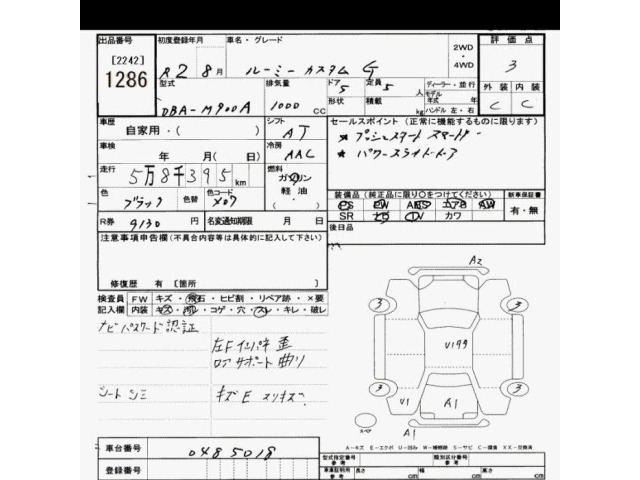 出品番号 初度登録年月 車名・グレード 2WD・4WD 評価点
[2242]
1286
R2 8月 ルーミー カスタム G 3
型式 排気量 ドア 5 定員 5 人 ディーラー・並行 外装 内装
DBA-M900A 1000 CC 形状 積載 kg モデル年式 年 ハンドル 左・右 C C
車歴 自家用・( ) シフト AT セールスポイント (正常に機能するものに限ります)
★ プッシュスタート スマートキー
車検 年 月(日) 冷房 AAC ★ パワースライドドア
走行 5万8千395km 燃料 ガソリン・軽油・
色 ブラック 色替 色コード X07 装備品 (純正品に限り○をつけてください) 新車保証書
PS PW ABS エアB AW 有・無
SR ナビ TV カワ
R券 9130円 名変通知期限 月 日 後日品
注意事項申告欄(不具合内容等は具体的に記入して下さい)
修復歴 有 [箇所 ]
検査員記入欄 FW キズ・飛石・ヒビ割・リペア跡・×要
内装 キズ・汚レ・コゲ・穴・スレ・キレ・破レ
ナビパスワード認証
左Fインパネ
ロアサポート曲り
シートシミ キズE スリキズ
A2
3 3
U199
3 3
U1 A1
スペア A1
A-キズ E-エクボ U-凹み W-補修跡 S-サビ C-腐食 XX-交換済
車台番号 0485018 型式指定番号 参考 類別区分番号 参考
登録番号 車両証明用 参考 長さ cm 幅 cm 高さ cm